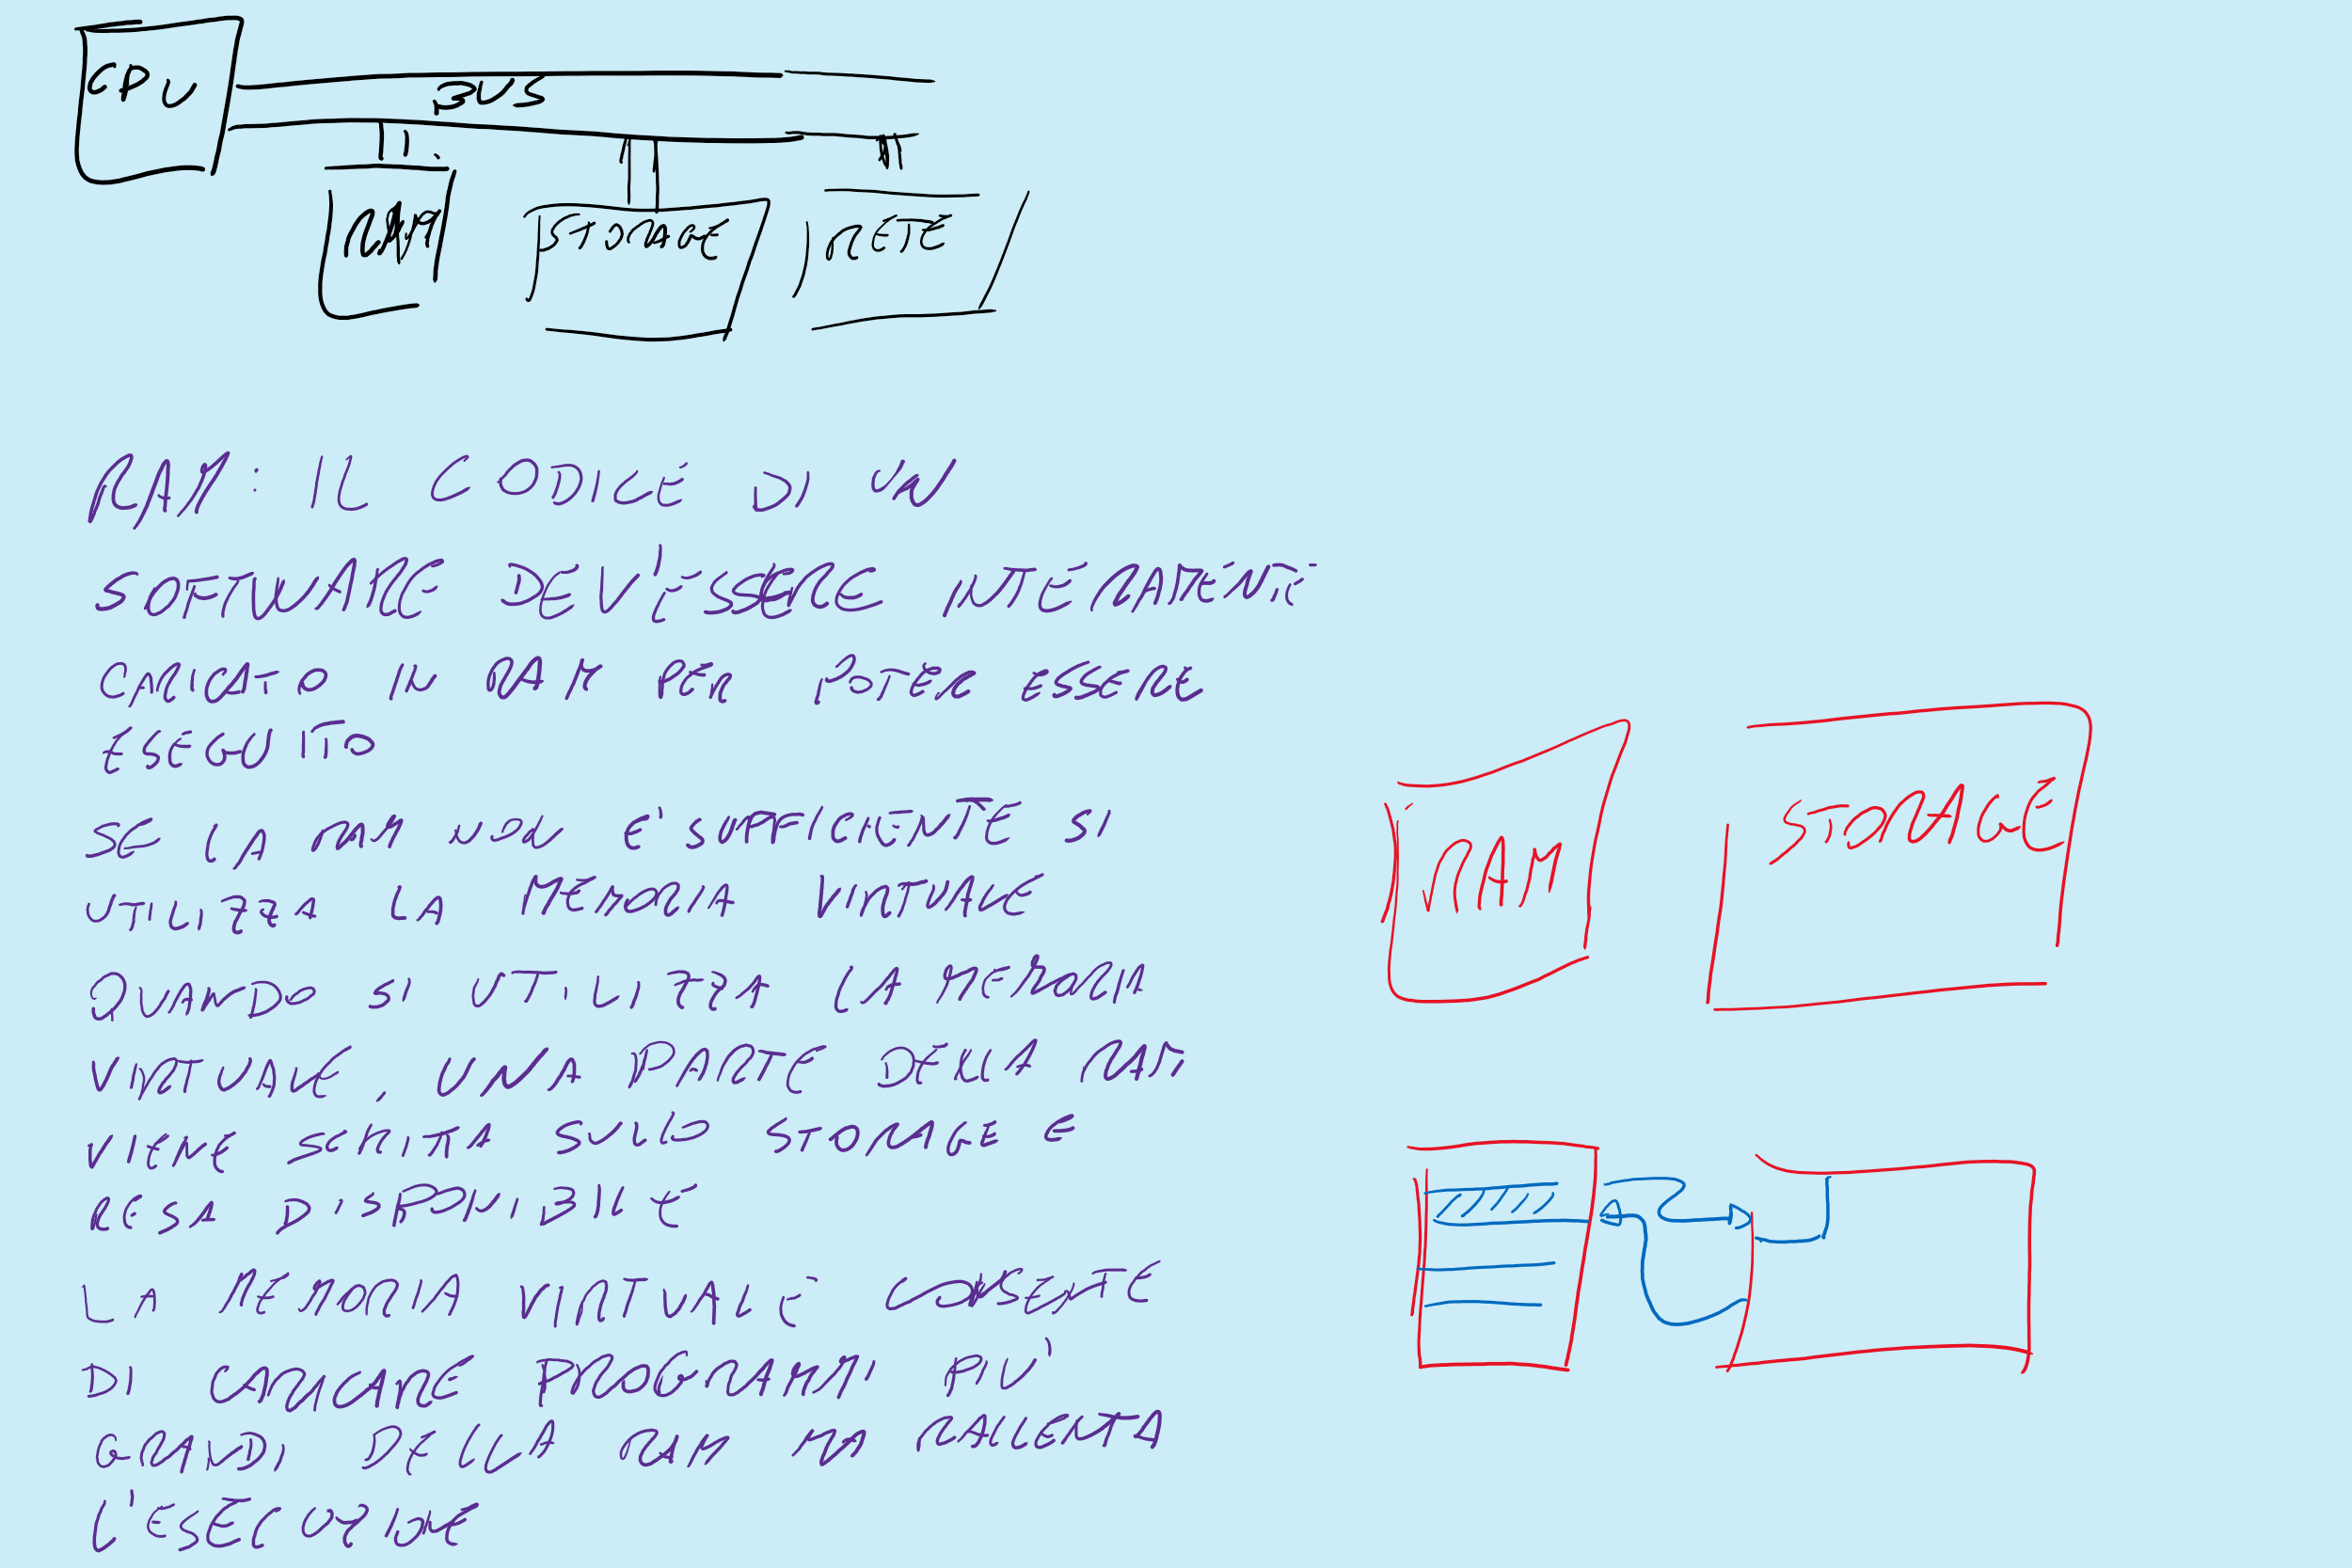 CPU
BUS
RAM
STORAGE
RETE
RAM: IL CODICE DI UN
SOFTWARE DEV'ESSERE INTERAMENTE
CARICATO IN RAM PER POTER ESSERE
ESEGUITO
SE LA RAM NON E' SUFFICIENTE SI
UTILIZZA LA MEMORIA VIRTUALE
QUANDO SI UTILIZZA LA MEMORIA
VIRTUALE, UNA PARTE DELLA RAM
VIENE SCRITTA SULLO STORAGE E
RESA DISPONIBILE
LA MEMORIA VIRTUALE CONSENTE
DI CARICARE PROGRAMMI PIU'
GRANDI DELLA RAM MA RALLENTA
L'ESECUZIONE
RAM
STORAGE